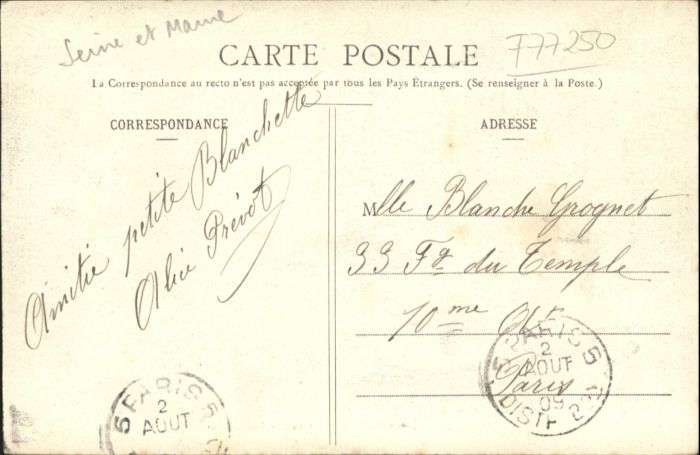 Seine et Marne
F77250
CARTE POSTALE
La Correspondance au recto n'est pas acceptée par tous les Pays Étrangers. (Se renseigner à la Poste.)
CORRESPONDANCE
Amitié petite Blanchette
Alice Prévot
ADRESSE
Mlle Blanche Grognet
33 Fg du Temple
10me Art
Paris
5 PARIS 5
2
AOUT
5 PARIS 5
2
AOUT
09
DISTR